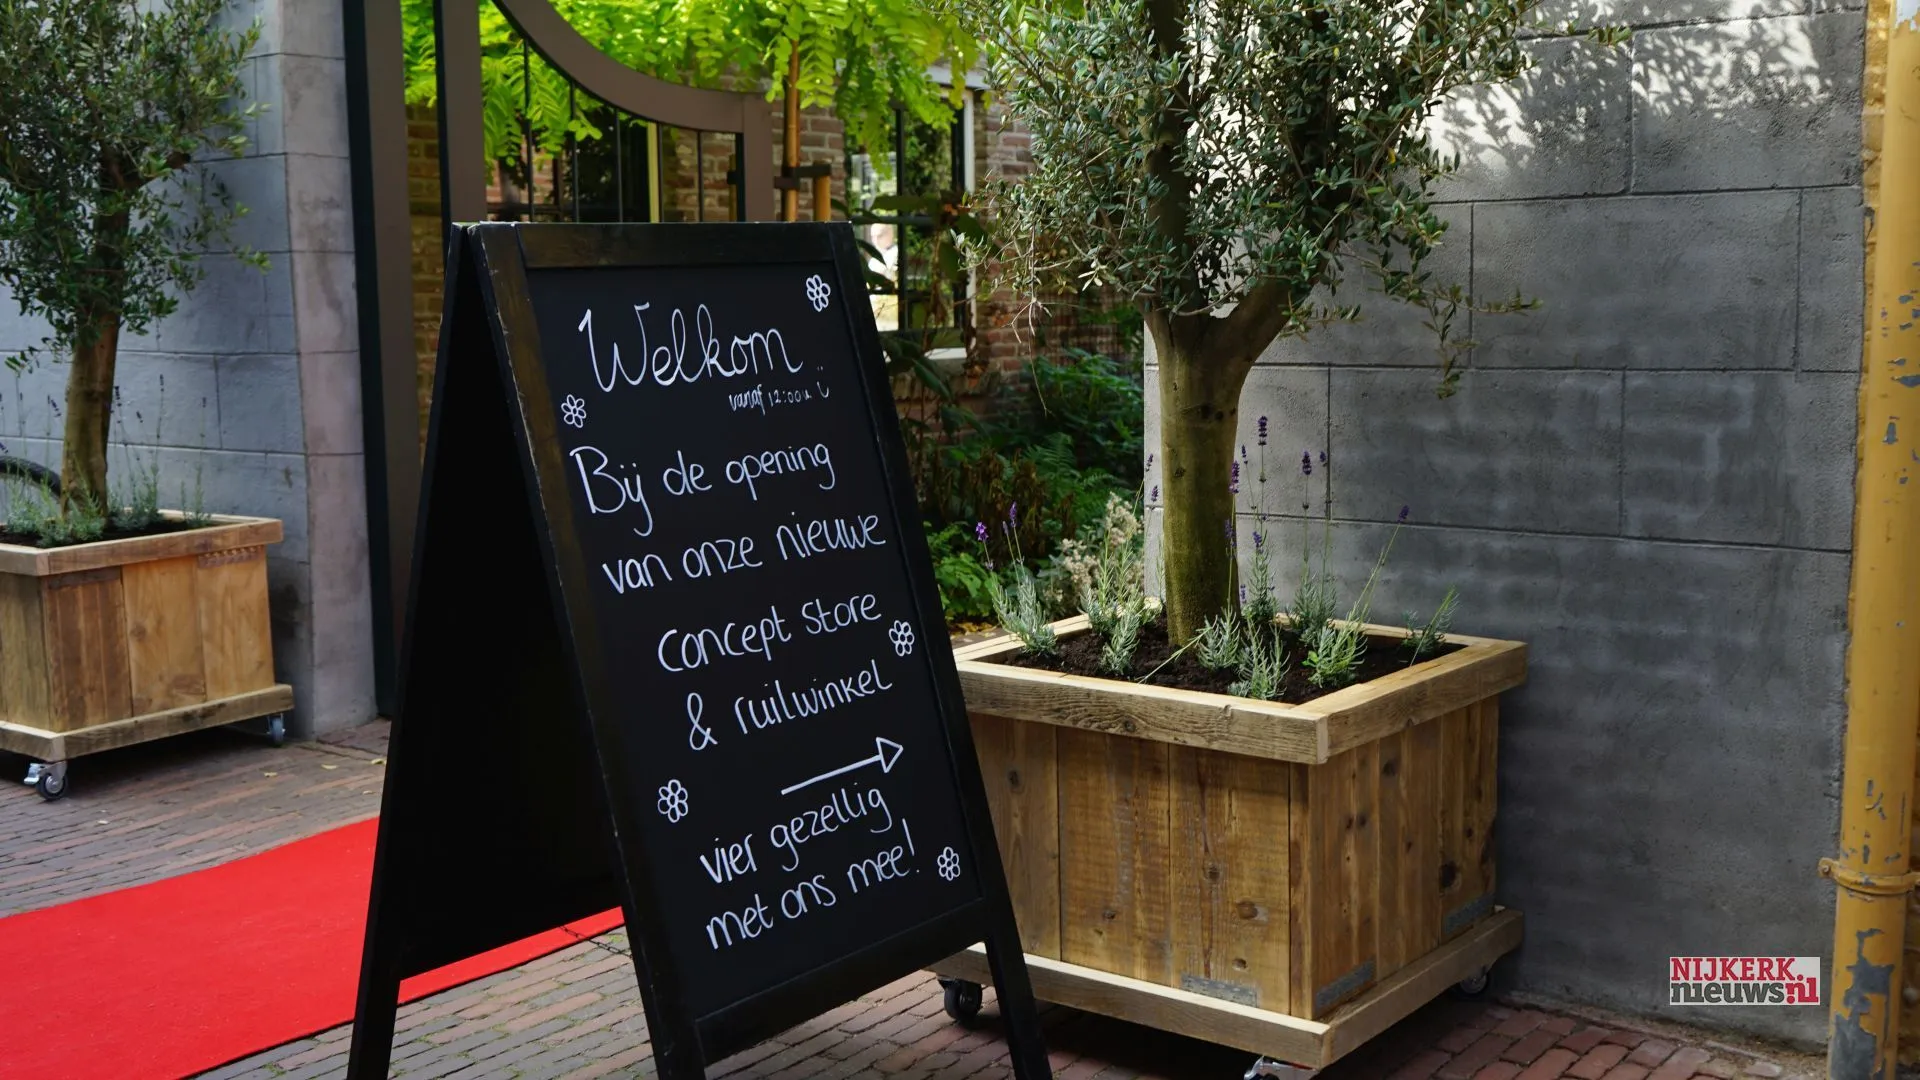 Welkom
vanaf 12:00u.
Bij de opening
van onze nieuwe
concept store
& ruilwinkel
vier gezellig
met ons mee!
NIJKERK.
nieuws.nl